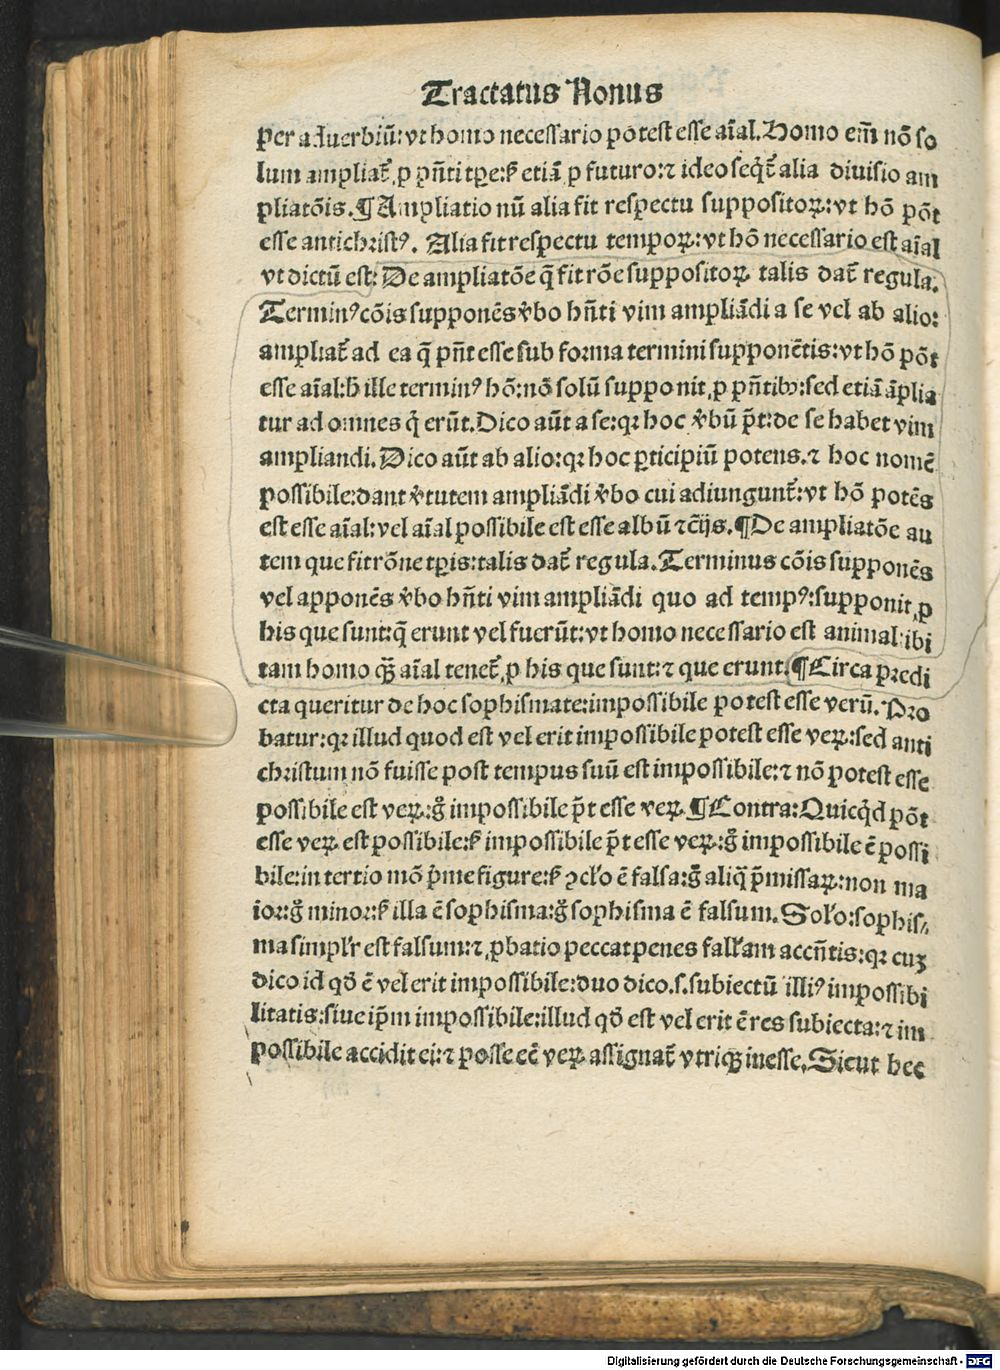 Tractatus Nonus
per aduerbiū: vt homo necessario potest esse aīal. Homo em̄ nō so
lum ampliat᷑ ꝓ p̄nti tꝑe: s̄ etiā ꝓ futuro: ⁊ ideo seq̇t᷑ alia diuisio am
pliatōis. ¶ Ampliatio nū alia fit respectu suppositoꝝ: vt hō pōt
esse antichristꝰ. Alia fit respectu tempoꝝ: vt hō necessario est aīal
vt dictū est: De ampliatōe q̄ fit rōe suppositoꝝ talis dat᷑ regula.
Terminꝰ cōis supponēs v̾bo hn̄ti vim ampliādi a se vel ab alio:
ampliat᷑ ad ea q̄ pn̄t esse sub forma termini supponētis: vt hō pōt
esse aīal: h̄ ille terminꝰ hō: nō solū supponit ꝓ p̄ntibꝰ: sed etiā āplia
tur ad omnes q̇ erūt. Dico aūt a se: qꝛ hoc v̾bū p̄t: de se habet vim
ampliandi. Dico aūt ab alio: qꝛ hoc ꝑticipiū potens. ⁊ hoc nomē
possibile: dant v̾tutem ampliādi v̾bo cui adiungunt᷑: vt hō potēs
est esse aīal: vel aīal possibile est esse albū ⁊c̄ijs. ¶ De ampliatōe au
tem que fit rōne tꝑis: talis dat᷑ regula. Terminus cōis supponēs
vel apponēs v̾bo hn̄ti vim ampliādi quo ad tempꝰ: supponit ꝓ
his que sunt: q̄ erunt vel fuerūt: vt homo necessario est animal: ibi
tam homo qꝫ̄ aīal tenet᷑ ꝓ his que sunt: ⁊ que erunt. ¶ Circa predi
cta queritur de hoc sophismate: impossibile potest esse verū. Pro
batur: qꝛ illud quod est vel erit impossibile potest esse veꝝ: sed anti
christum nō fuisse post tempus suū est impossibile: ⁊ nō potest esse
possibile est veꝝ: g̊ impossibile p̄t esse veꝝ. ¶ Contra: Quicq̇d pōt
esse veꝝ est possibile: s̄ impossibile p̄t esse veꝝ: g̊ impossibile ē possi
bile: in tertio mō p̄me figure: s̄ ꝯcl'o ē falsa: g̊ aliq̄ p̄missaꝝ: non ma
ior: g̊ minor: s̄ illa ē sophisma: g̊ sophisma ē falsum. Sol'o: sophis⸗
ma simpl'r est falsum: ⁊ ꝓbatio peccat penes fall'am accn̄tis: qꝛ cuꝫ
dico id qd̄ ē vel erit impossibile: duo dico. s. subiectū illiꝰ impossibi
litatis: siue ip̄m impossibile: illud qd̄ est vel erit ē res subiecta: ⁊ im
possibile accidit ei: ⁊ posse eē veꝝ assignat᷑ vtriqꝫ inesse. Sicut hec
Digitalisierung gefördert durch die Deutsche Forschungsgemeinschaft - DFG